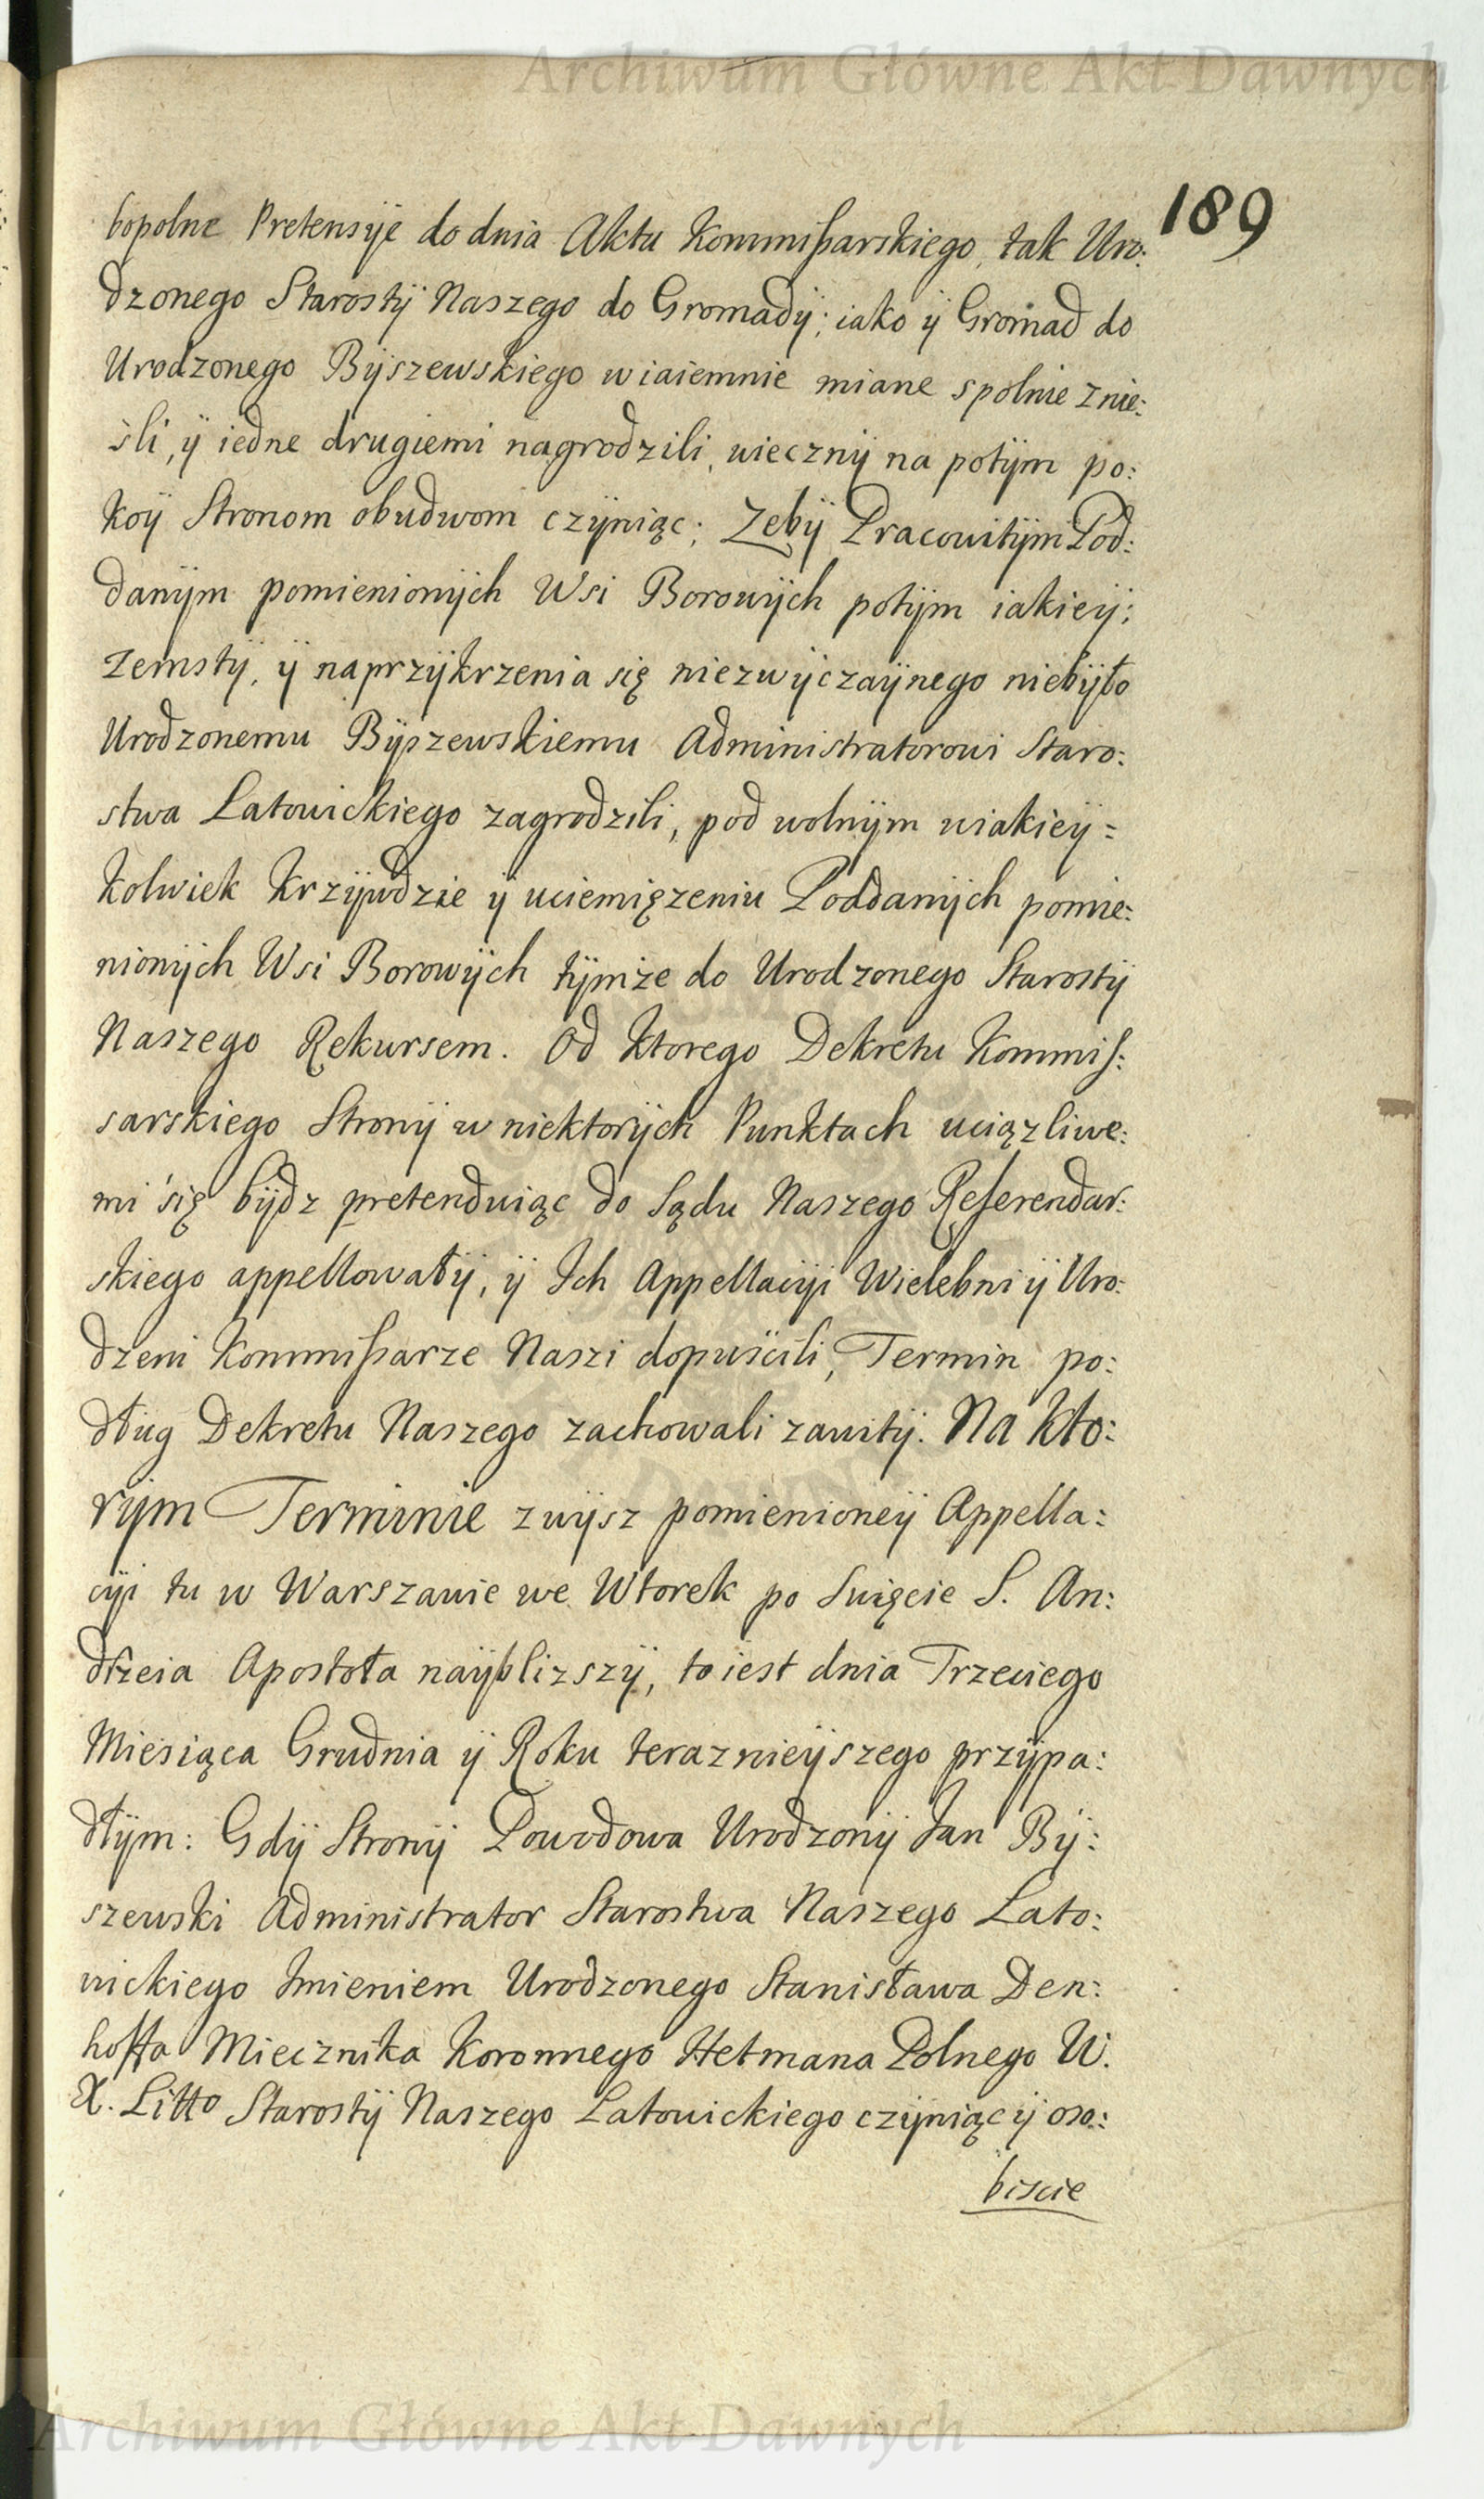 Archiwum Główne Akt Dawnych
189
bopolne Pretensÿe do dnia Aktu Kommißarskiego, tak Uro:
dzonego Starostÿ Naszego do Gromadÿ; iako ÿ Gromad do
Urodzonego Bÿszewskiego wiaiemnie miane spolnie znie:
śli, ÿ iedne drugiemi nagrodzili, wiecznÿ na potÿm po:
koÿ Stronom obudwom czÿniąc; Zebÿ Pracowitÿm Pod:
danÿm pomienionÿch Wsi Borowÿch potÿm iakieÿ:
Zemstÿ, ÿ naprzÿkrzenia się niezwÿczaÿnego niebÿło
Urodzonemu Bÿszewskiemu Administratorowi Staro:
stwa Latowickiego zagrodzili, pod wolnÿm wiakieÿ=
kolwiek krzÿwdzie ÿ uciemięzeniu Poddanÿch pomie:
nionÿch Wsi Borowÿch tÿmże do Urodzonego Starostÿ
Naszego Rekursem. Od ktorego Dekretu Kommis:
sarskiego Stronÿ w niektorÿch Punktach uciązliwe:
mi się bÿdz pretenduiąc do Sądu Naszego Referendar:
skiego appellowałÿ, ÿ Ich Appellacÿi Wielebni ÿ Uro:
dzeni Kommißarze Naszi dopuścili, Termin po:
dług Dekretu Naszego zachowali zawitÿ. Na kto:
rÿm Terminie zwÿsz pomienioneÿ Appella:
cÿi tu w Warszawie we Wtorek po Swięcie S. An:
drzeia Apostoła naÿblizszÿ, to iest dnia Trzeciego
Miesiąca Grudnia ÿ Roku teraznieÿszego przÿpa:
dłÿm: Gdÿ Stronÿ Powodowa Urodzonÿ Jan Bÿ:
szewski Administrator Starostwa Naszego Lato:
wickiego Imieniem Urodzonego Stanisława Den:
hoffa Miecznika Koronnego Hetmana Polnego W.
X. Litto Starostÿ Naszego Latowickiego czÿniąc ÿ oso:
biscie
Archiwum Główne Akt Dawnych